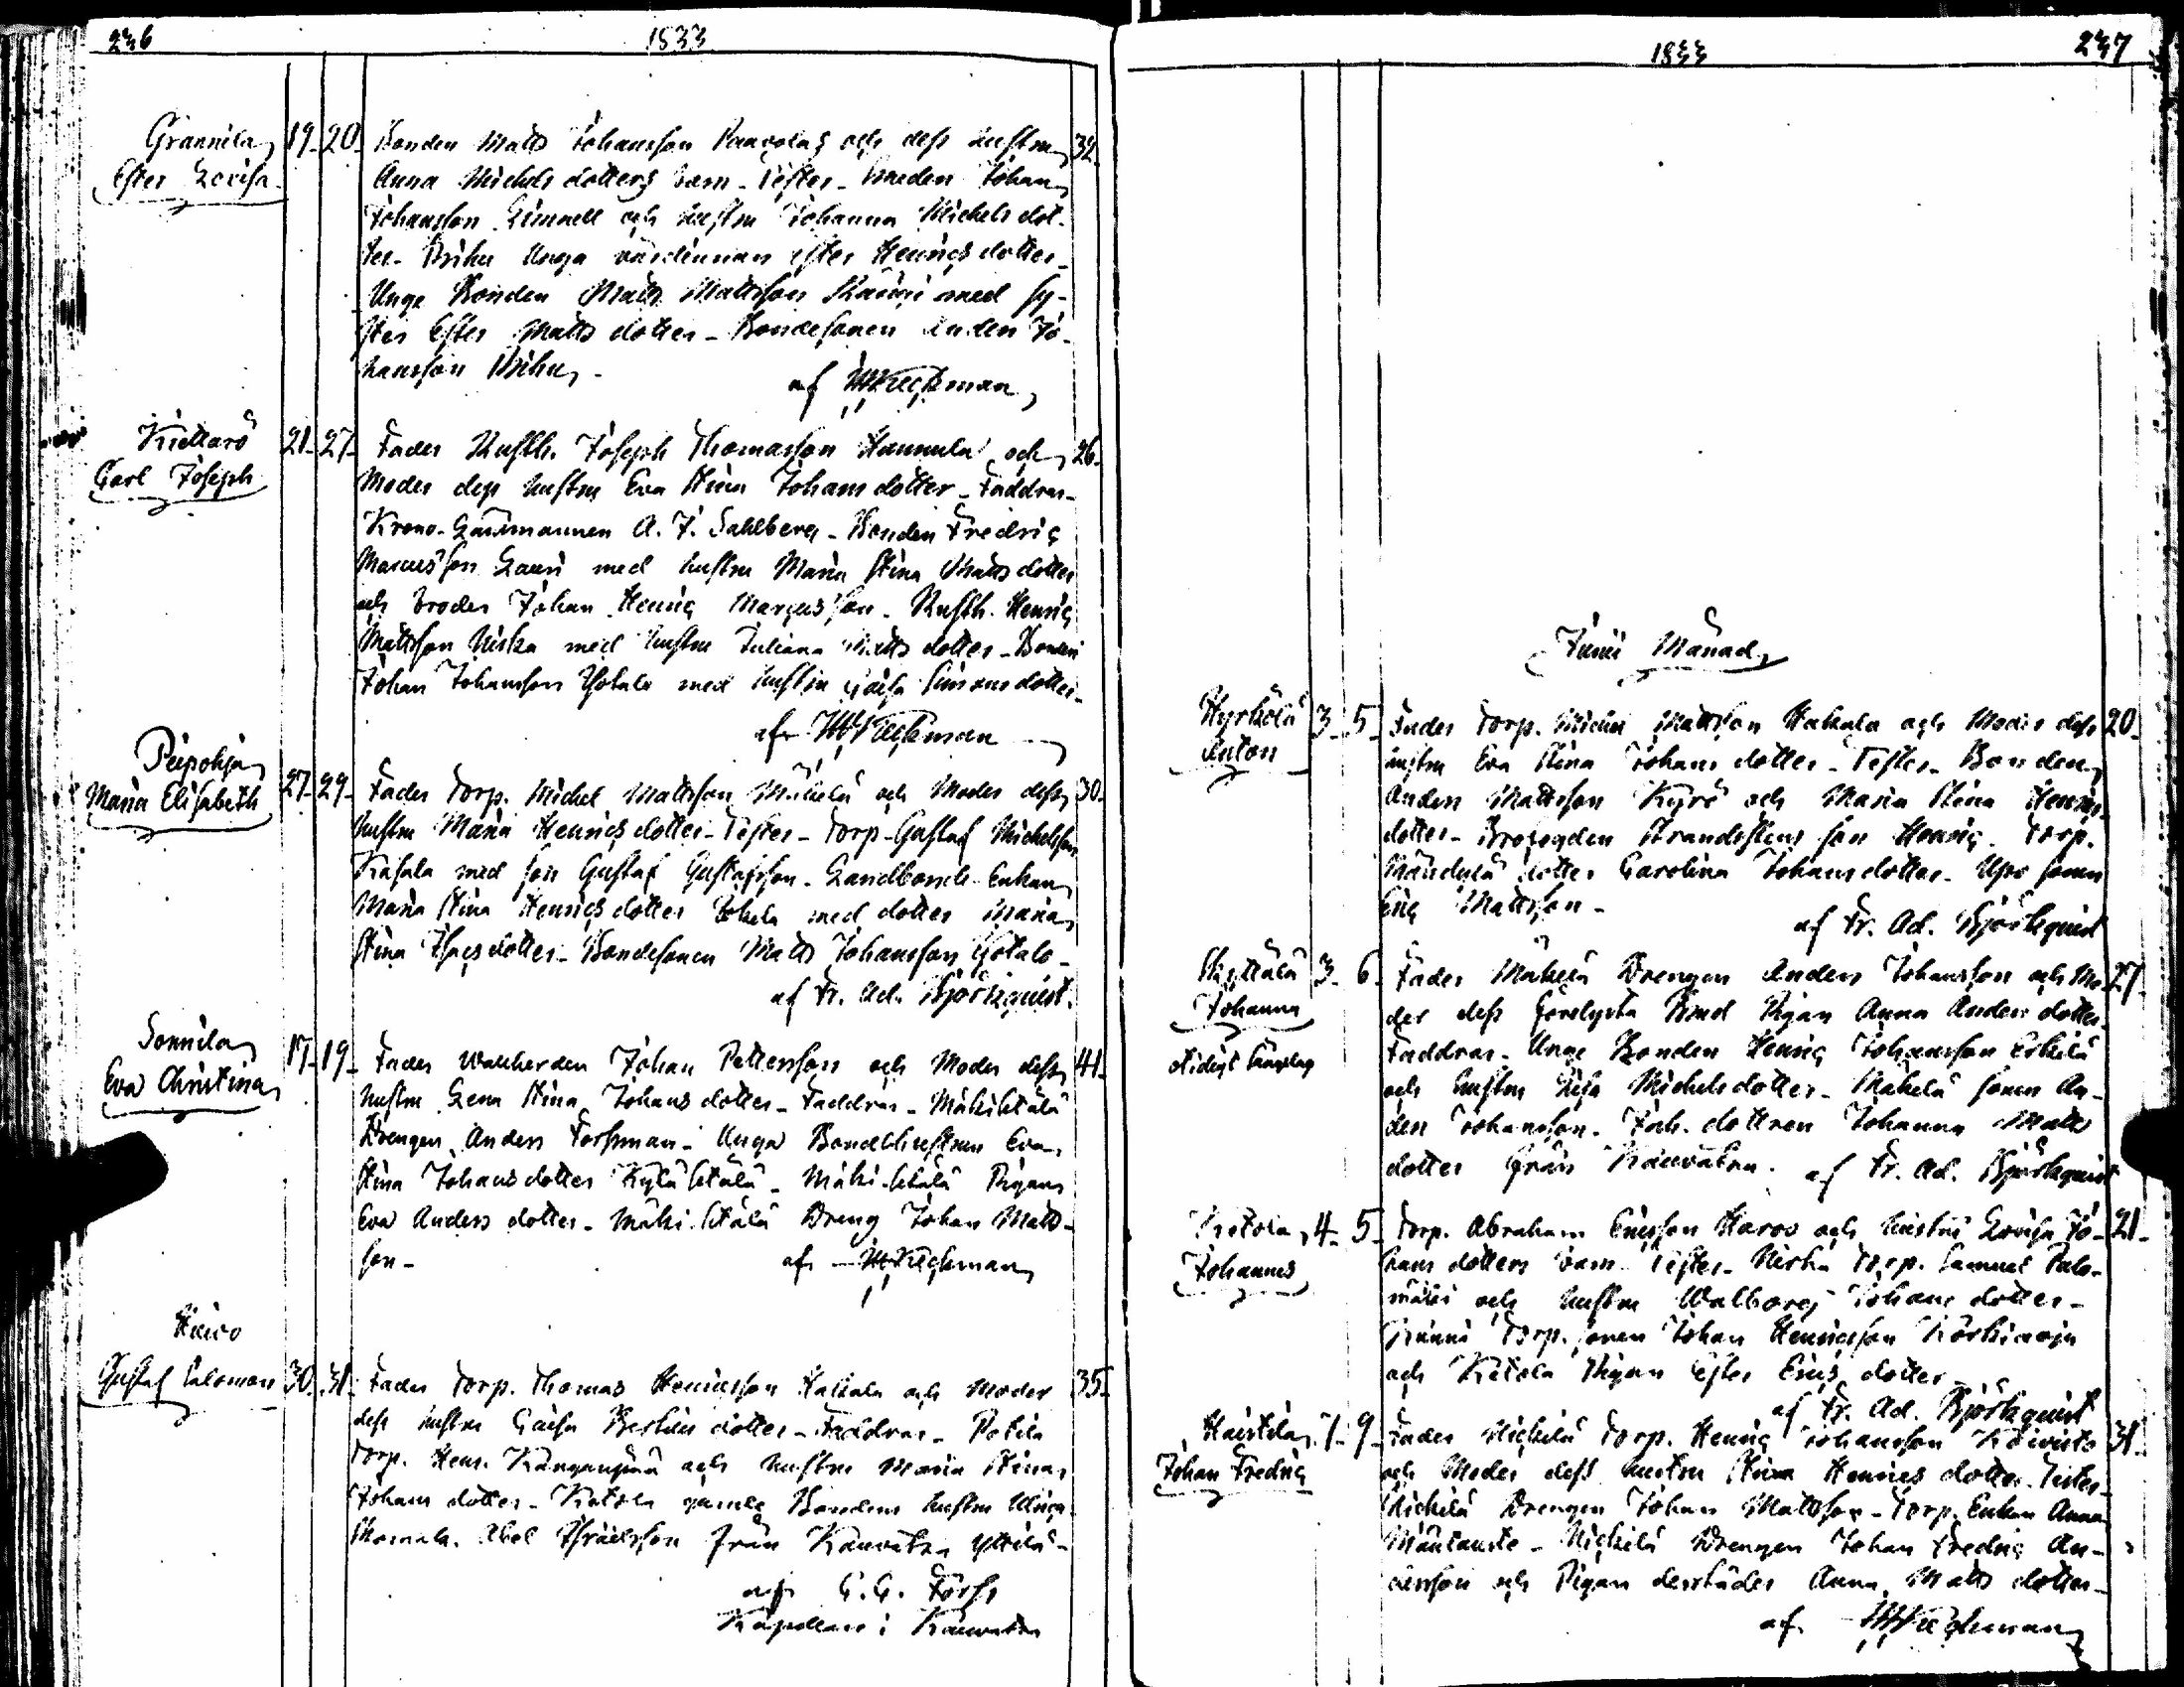 236
1833
Grannila
Ester Lovisa
19. 20. Bonden Matts Johansson Paavolas och dess hustru 32.
Anna Michelsdotters barn. Testes. Smeden Johan
Johansson Limnell och hustru Johanna Michelsdot-
ter. Prihu Unga värdinnan Ester Henricsdotter.
Unge Bonden Matts Mattsson Kauri med sy-
ster Ester Mattsdotter. Bondesonen Anders Jo-
hansson Prihu.
af
Kiettare
Carl Joseph
21. 27. Fader Rusth. Joseph Thomasson Hannula och 26.
Moder dess hustru Eva Stina Johansdotter. Faddrar.
Krono-Länsmannen A. F. Sahlberg. Bonden Fredric
Marcusson Lauri med hustru Maria Stina Mattsdotter
och broder Johan Henric Marcusson. Rusth. Henric
Mattsson Uiska med hustru Juliana Mattsdotter. Bonden
Johan Johansson Yötala med hustru Caisa Simonsdotter.
af
Peipohja
Maria Elisabeth
27. 29. Fader Torp. Michel Mattsson Mäkelä och Moder dess 30.
hustru Maria Henricsdotter. Testes. Torp. Gustaf Michelsson
Kasala med son Gustaf Gustafsson. Landbonde Enkan
Maria Stina Henricsdotter med dotter Maria
Stina Isacsdotter. Bondesonen Matts Johansson Yötala.
af Fr. Ad. Björkquist.
Sonnila
Eva Christina
17. 19. Fader Vallherden Johan Pettersson och Moder dess 41.
hustru Lena Stina Johansdotter. Faddrar. Mäkiλtälä
Drengen Anders Forsman. Unga Bondehustrun Eva
Stina Johansdotter Kylä Ittälä. Mäki-Ittälä Pigan
Eva Andersdotter. Mäki-Ittälä Dreng Johan Matts-
son.
af
Haivo
Gustaf Salomon
30. 31. Fader Torp. Thomas Henricsson Hakala och Moder 35.
dess hustru Caisa Bertilsdotter. Faddrar.
Torp. Henr. Kanganpää och hustru Maria Stina
Johansdotter. Ketola gamle Bondens hustru Ulrica
Thomasd. Abel Israelsson från Kauvatsa Yttilä.
af G. G. Forss
Kapellan i Kauvatsa
1833
247
Junii Månad
Hyrkölä
Anton
3. 5. Fader Torp. Michel Mattsson Hakala och Moder dess 20.
hustru Eva Stina Johansdotter. Testes. Bonden
Anders Mattsson Kyrö och Maria Stina Henrics-
dotter. Brofogden Strandstens son Henric. Torp.
dotter Carolina Johansdotter. sonen
Eric Mattsson.
af Fr. Ad. Björkquist
Johanna
otidigt lägersmål
3. 6. Fader Mäkelä Drengen Anders Johansson och Mo- 27.
der dess Förelysta Brud Pigan Anna Andersdotter.
Faddrar. Unge Bonden Henric Johansson Erkelä
och hustru Lisa Michelsdotter. Mäkelä sonen An-
ders Johansson. Inh. dottren Johanna Matts
dotter från Kauvatsa. af Fr. Ad. Björkquist
Ketola
Johannes
4. 5. Torp. Abraham Ericsson Harvo och hustru Lovisa Jo- 21.
hansdotters barn. Testes. Torp. Samuel Palo-
mäki och hustru Walborg Johansdotter.
Torp. sonen Johan Henricsson Korkinoja
och Ketola Pigan Ester Ericsdotter
af Fr. Ad. Björkquist
Haistila
Johan Fredric
7. 9. Fader Mickelä Torp. Henric Johansson Koivisto 31.
och Moder dess hustru Stina Henricsdotter. Testes.
Mickelä Drengen Johan Mattsson. Torp. Enkan Anna
Mäntauste. Mickelä Drengen Johan Fredric An-
dersson och Pigan derstädes Anna Mattsdotter.
af